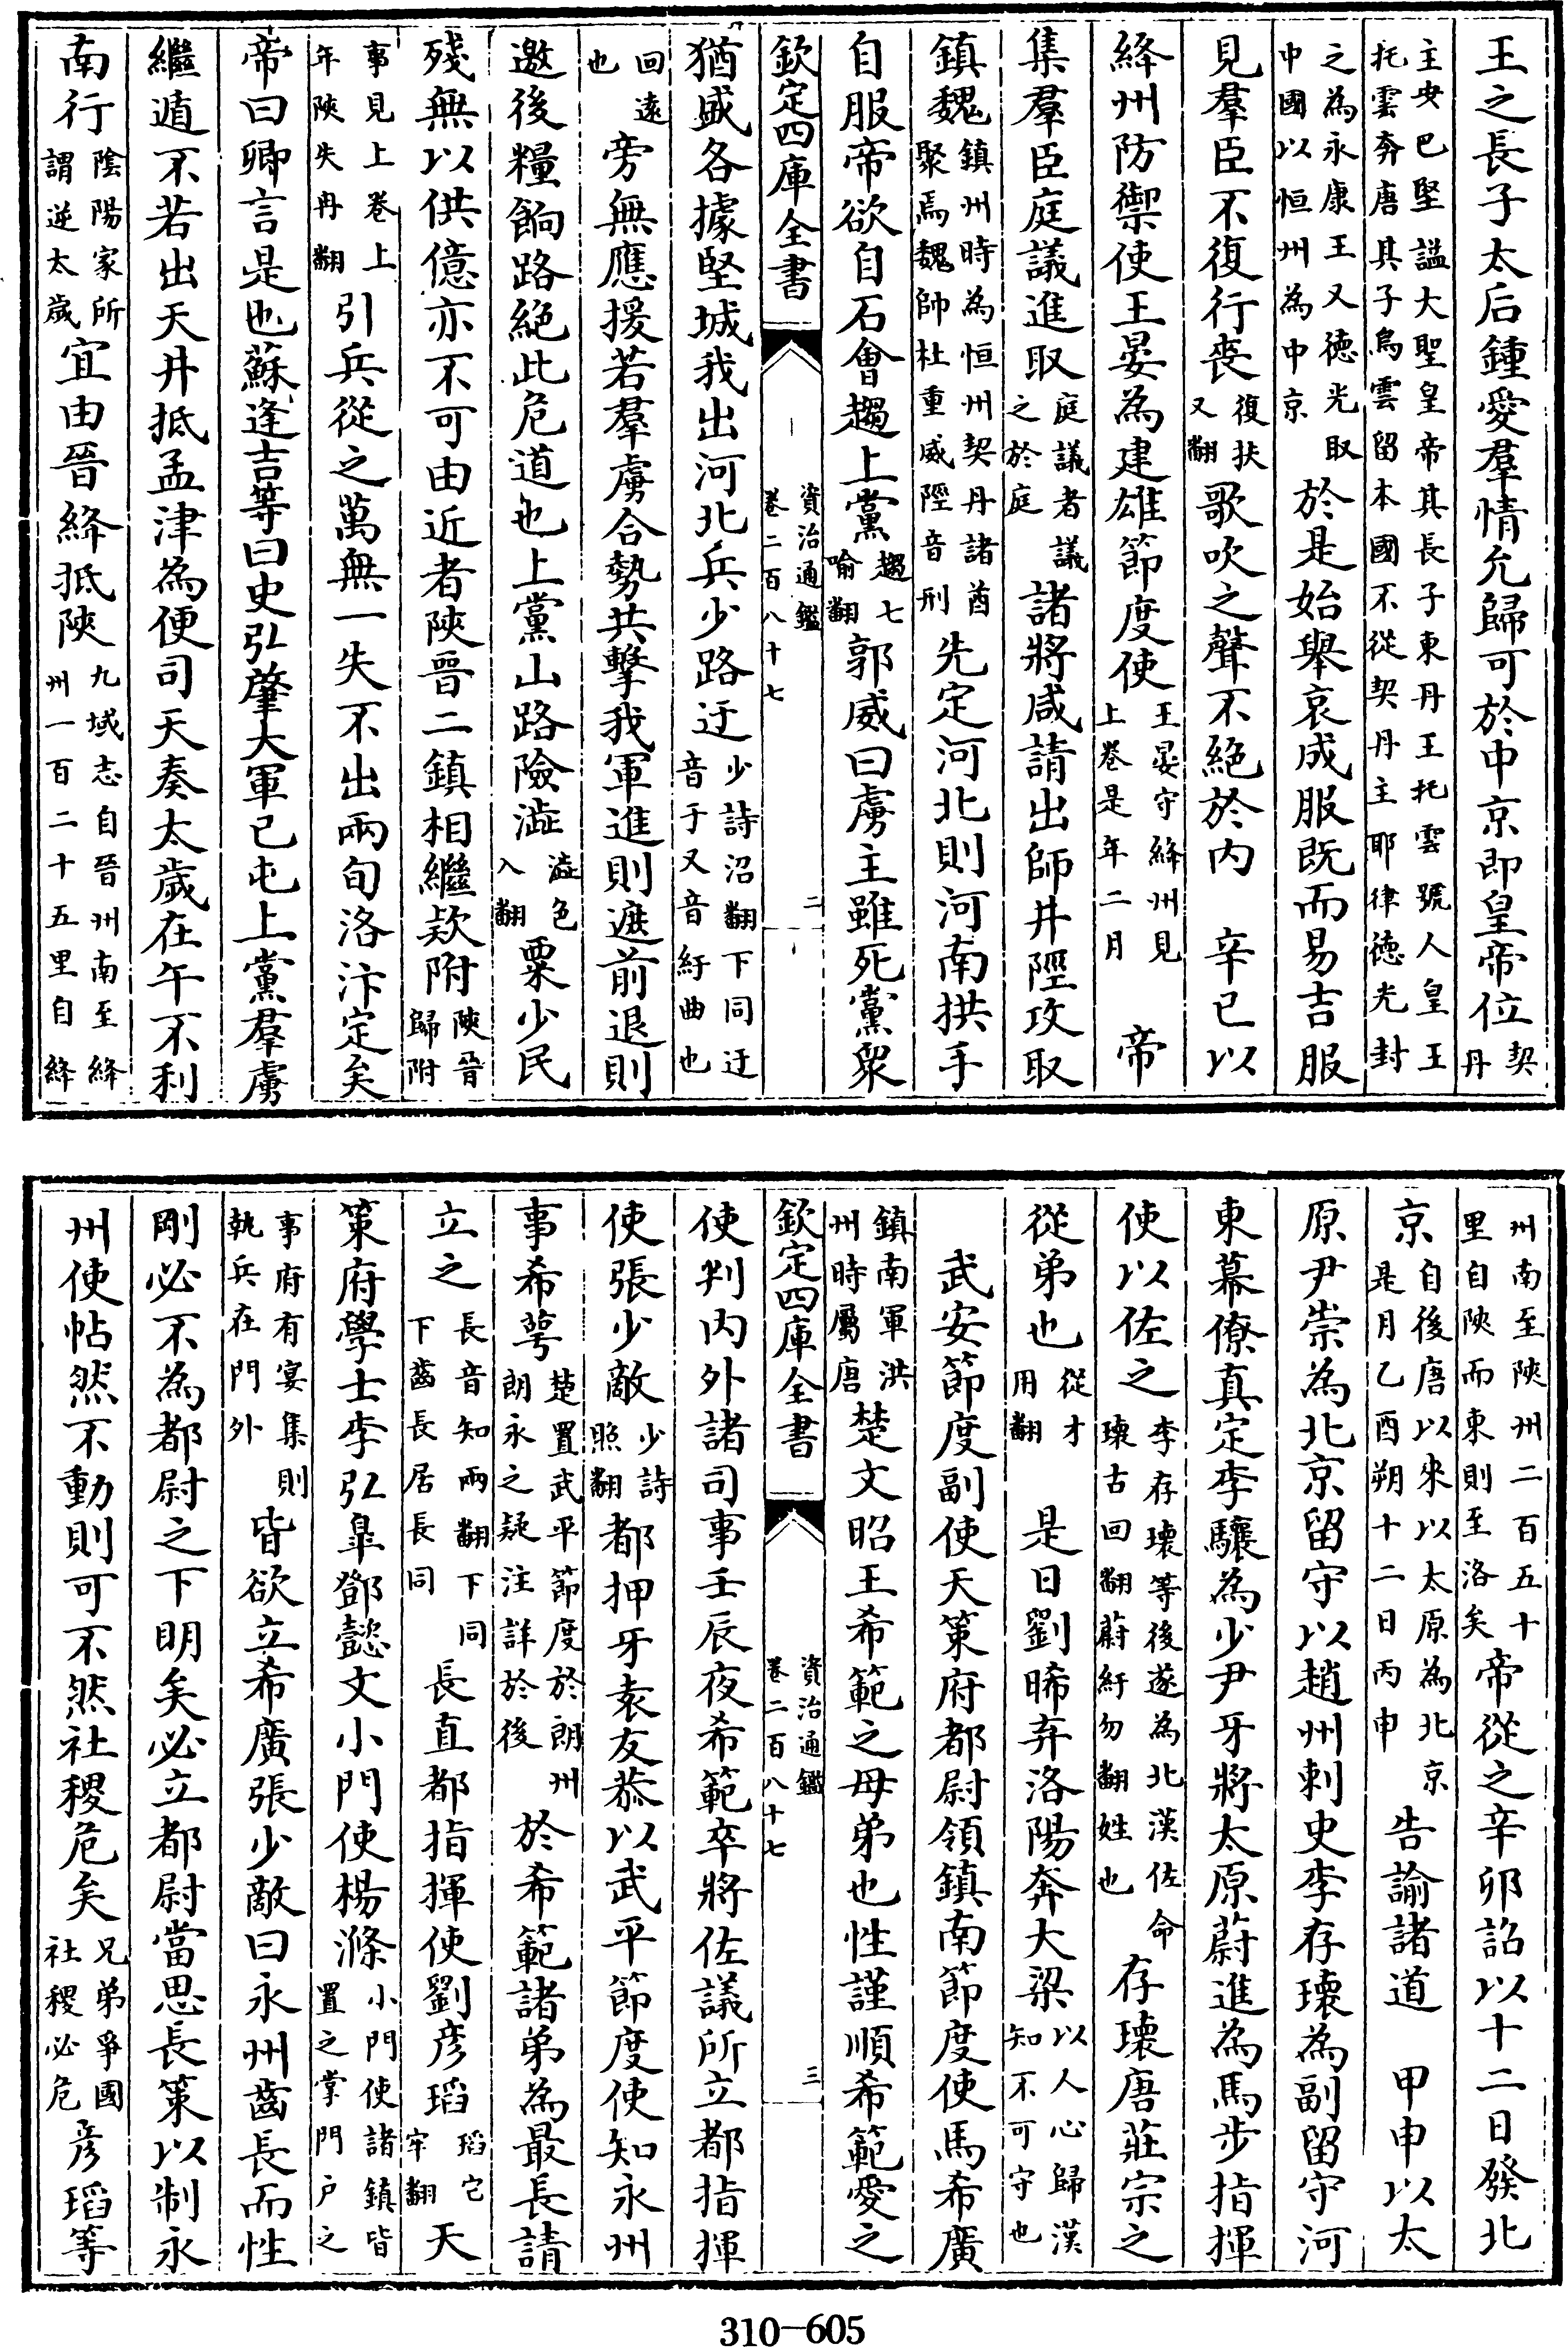 王之長子太后鍾愛羣情允歸可於中京即皇帝位契丹
主安巴堅諡大聖皇帝其長子東丹王托雲號人皇王托雲奔唐其子烏雲留本國不從契丹主耶律徳光封
之為永康王又徳光取中國以恒州為中京於是始舉哀成服既而易吉服
見羣臣不復行喪復扶又翻歌吹之聲不絶於内　辛巳以
絳州防禦使王晏為建雄節度使王晏守絳州見上卷是年二月　帝
集羣臣庭議進取庭議者議之於庭諸將咸請出師井陘攻取
鎮魏鎮州時為恒州契丹諸酋聚焉魏帥杜重威陘音刑先定河北則河南拱手
自服帝欲自石會趨上黨趨七喻翻郭威曰虜主雖死黨衆
欽定四庫全書　資治通鑑卷二百八十七　二
猶盛各據堅城我出河北兵少路迂少詩沼翻下同迂音于又音紆曲也
回遠也旁無應援若羣虜合勢共擊我軍進則遮前退則
邀後糧餉路絶此危道也上黨山路險澁澁色入翻粟少民
殘無以供億亦不可由近者陜晉二鎮相繼欵附陜晉歸附
事見上卷上年陜失冉翻引兵從之萬無一失不出兩旬洛汴定矣
帝曰卿言是也蘇逢吉等曰史弘肇大軍已屯上黨羣虜
繼遁不若出天井抵孟津為便司天奏太歲在午不利
南行陰陽家所謂逆太歲宜由晉絳抵陜九域志自晉州南至絳州一百二十五里自絳
州南至陜州二百五十里自陜而東則至洛矣帝從之辛卯詔以十二日發北
京自後唐以來以太原為北京是月乙酉朔十二日丙申告諭諸道　甲申以太
原尹崇為北京留守以趙州刺史李存瓌為副留守河
東幕僚真定李驤為少尹牙將太原蔚進為馬步指揮
使以佐之李存瓌等後遂為北漢佐命瓌古回翻蔚紆勿翻姓也存瓌唐莊宗之
從弟也從才用翻　是日劉晞弃洛陽奔大梁以人心歸漢知不可守也
武安節度副使天策府都尉領鎮南節度使馬希廣
鎮南軍洪州時屬唐楚文昭王希範之母弟也性謹順希範愛之
欽定四庫全書　資治通鑑卷二百八十七　三
使判内外諸司事壬辰夜希範卒將佐議所立都指揮
使張少敵少詩照翻都押牙袁友恭以武平節度使知永州
事希萼楚置武平節度於朗州朗永之疑注詳於後於希範諸弟為最長請
立之長音知兩翻下同下齒長居長同長直都指揮使劉彦瑫瑫它牢翻天
策府學士李弘臯鄧懿文小門使楊滌小門使諸鎮皆置之掌門户之
事府有宴集則執兵在門外皆欲立希廣張少敵曰永州齒長而性
剛必不為都尉之下明矣必立都尉當思長策以制永
州使帖然不動則可不然社稷危矣兄弟爭國社稷必危彦瑫等
310—605